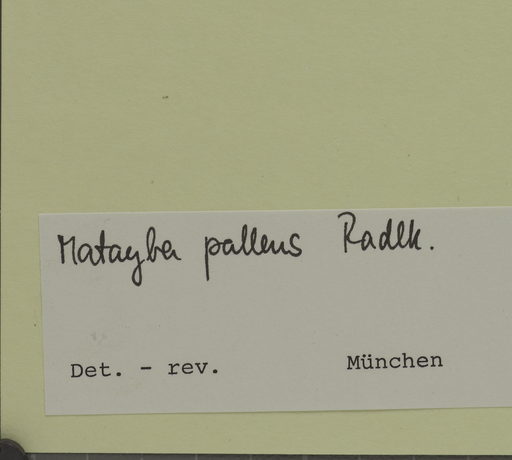 Matayba pallens Radlk.
Det. - rev. München